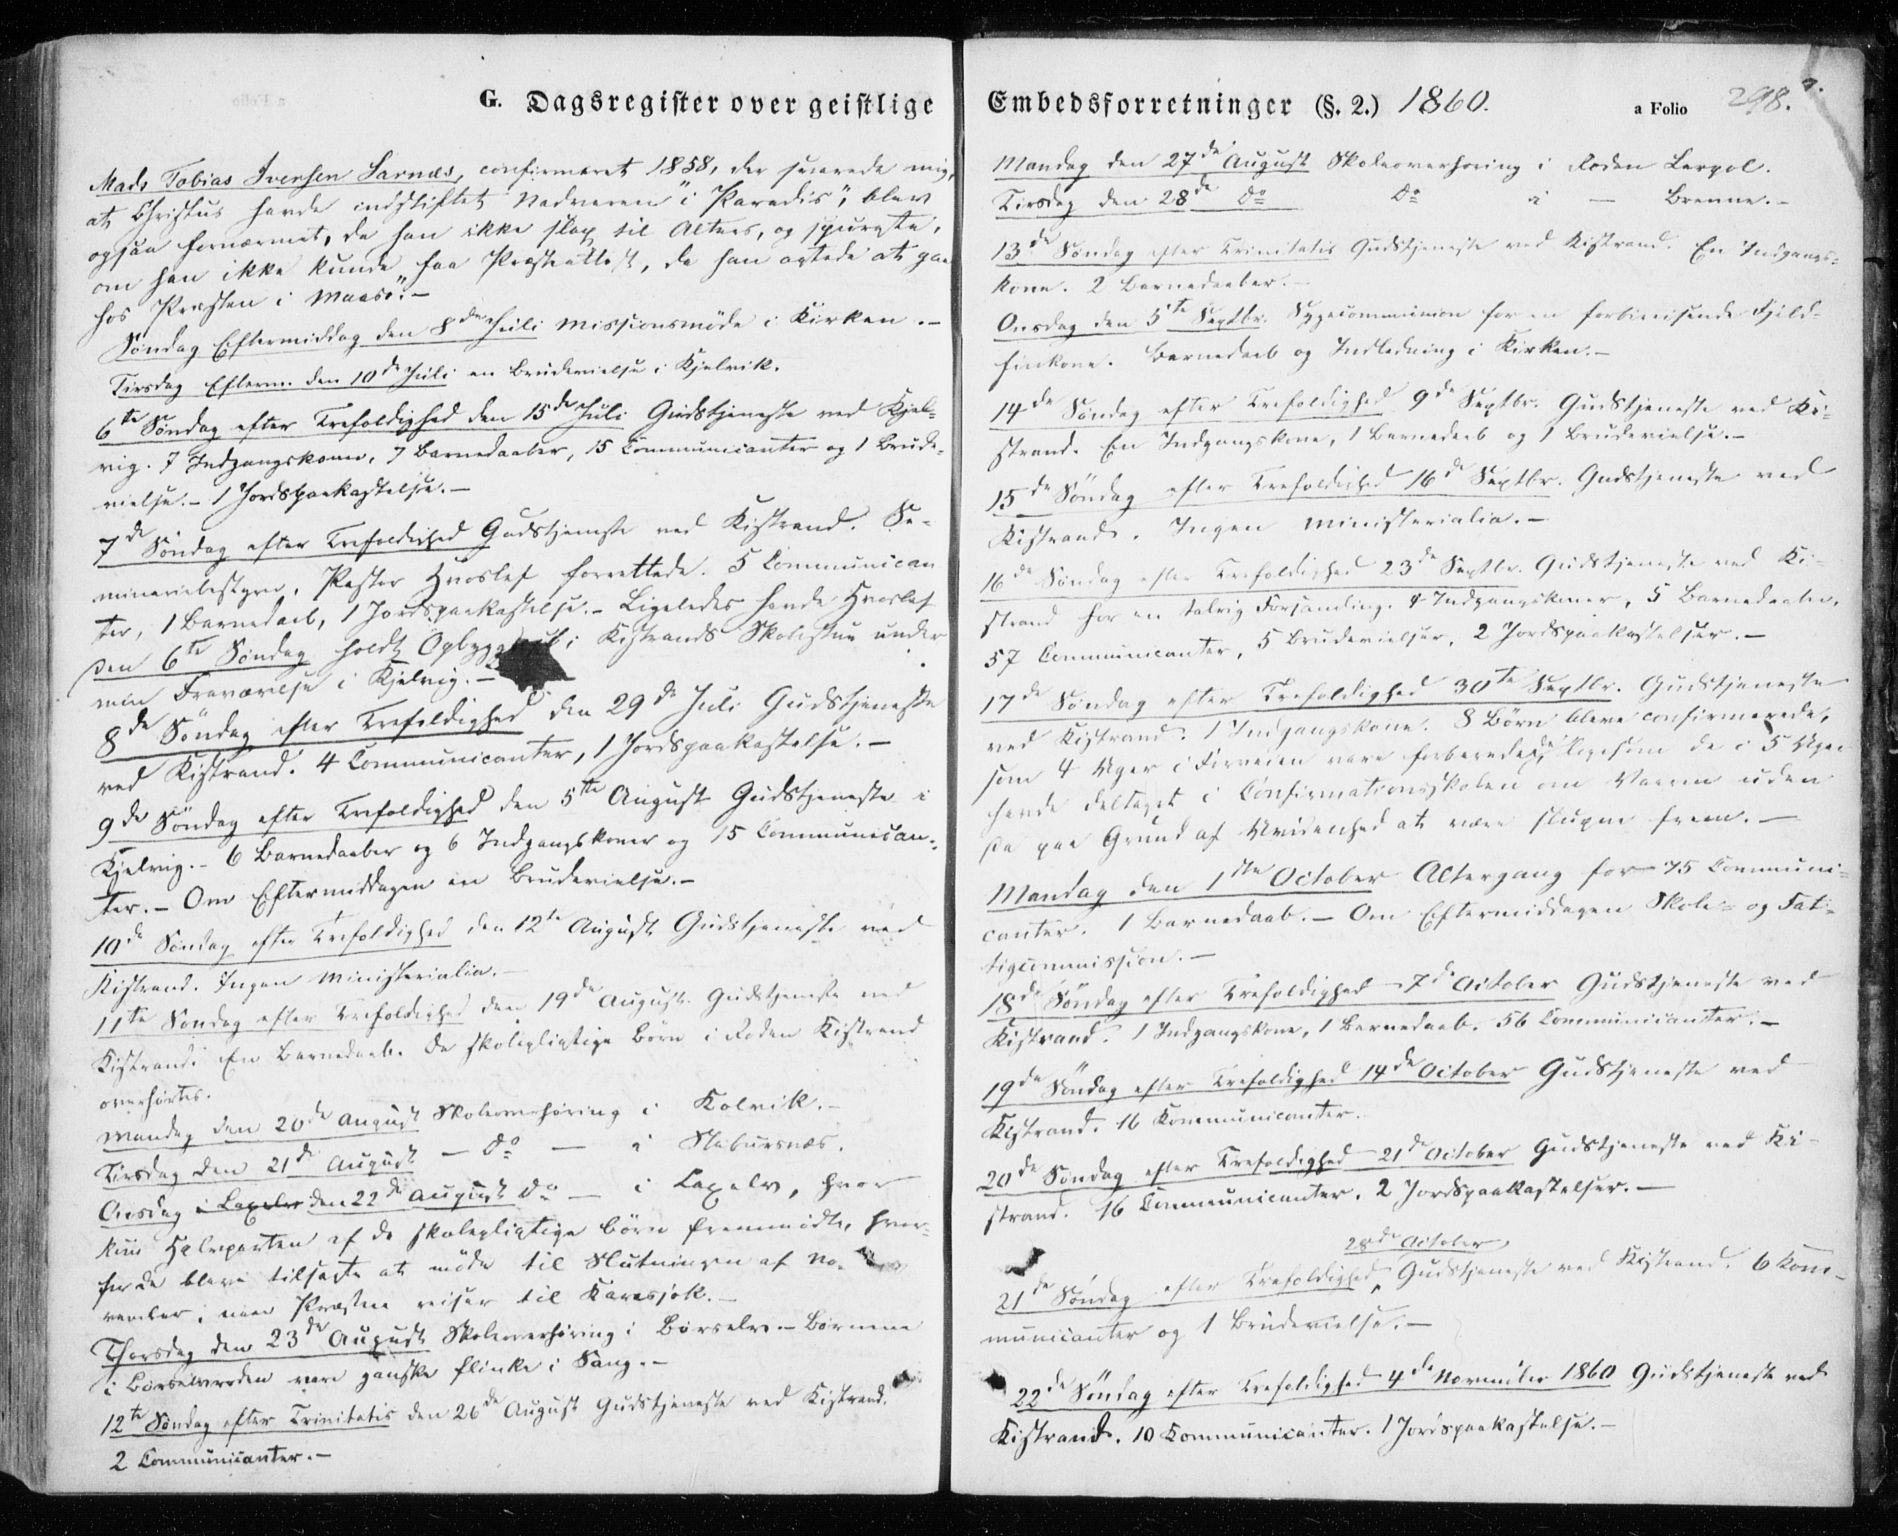 G. Dagsregister over geistlige
Mads Tobias Iversen Sarnæs, confirmeret 1858, der svarede mig,
at Christus havde indstiftet Nadveren "i Paradis", blev
ogsaa fornærmet, da han ikke slap til Alters, og spurgte,
om han ikke kunde faa Præsteattest, da han agtede at gaa
hos Præsten i Maasø". –
Søndag Eftermiddag den 8de Juli Missionsmøde i Kirken. –
Tirsdag Efterm. den 10de Juli en Brudevielse i Kjelvik.
6te Søndag efter Trefoldighed den 15de Juli Gudstjeneste ved Kjel-
vig. 7 Indgangskoner, 7 Barnedaaber, 15 Communicanter og 1 Brude-
vielse. – 1 Jordspaakastelse. –
7de Søndag efter Trefoldighed Gudstjeneste ved Kistrand. Se-
minariebestyrer, Pastor Hvoslef forrettede. 5 Communican
ter, 1 Barnedaab, 1 Jordspaakastelse. – Ligeledes havde Hvoslef
den 6te Søndag holdt Opbygg i Kistrands Skolestue under
min Fraværelse i Kjelvig. –
8de Søndag efter Trefoldighed den 29de Juli Gudstjeneste
ved Kistrand. 4 Communicanter, 1 Jordspaakastelse. –
9de Søndag efter Trefoldighed den 5te August Gudstjeneste i
Kjelvig. – 6 Barnedaaber og 6 Indgangskoner og 15 Communican-
ter. – Om Eftermiddagen en Brudevielse. –
10de Søndag efter Trefoldighed den 12te August Gudstjeneste ved
Kistrand. Ingen Ministerialia. –
11te Søndag efter Trefoldighed den 19de August Gudstjeneste ved
Kistrand. En Barnedaab. De skolepligtige Børn i Roden Kistrand
overhørtes.
Mandag den 20de August Skoleoverhøring i Kolvik. –
Tirsdag den 21de August – Do – i Stabursnæs.
Onsdag i Laxelv den 22de August Do – i Laxelv, hvor
kun Halvparten af de skolepligtige Børn fremmødte, hvor-
for de bleve tilsagte at møde til Slutningen af No-
vember, naar Præsten reiser til Karasjok. –
Thorsdag den 23de August Skoleoverhøring i Børselv. – Børnene
i Børselvroden vare ganske flinke i Sang. –
12te Søndag efter Trinitatis den 26de August Gudstjeneste ved Kistrand.
2 Communicanter. –
Embedsforretninger (§. 2.) 1860. a Folio 298.
Mandag den 27de August Skoleoverhøring i Roden Lerpol.
Tirsdag den 28de Do Do i – Brenne. –
13de Søndag efter Trinitatis Gudstjeneste ved Kistrand. En Indgangs-
kone. 2 Barnedaaber. –
Onsdag den 5te Septbr. Sygecommunion for en forbireisende Fjeld-
finkone. Barnedaab og Indledning i Kirken. –
14de Søndag efter Trefoldighed 9de Septbr. Gudstjeneste ved Ki-
strand. En Indgangskone, 1 Barnedaab og 1 Brudevielse. –
15de Søndag efter Trefoldighed 16de Septbr. Gudstjeneste ved
Kistrand. Ingen Ministerialia. –
16de Søndag efter Trefoldighed 23de Septbr. Gudstjeneste ved Ki-
strand for en talrig Forsamling. 4 Indgangskoner, 5 Barnedaaber,
57 Communicanter, 5 Brudevielser, 2 Jordspaakastelser. –
17de Søndag efter Trefoldighed 30te Septbr. Gudstjeneste
ved Kistrand. 1 Indgangskone. 8 Børn bleve confirmerede,
som 4 Uger i Forveien vare forberedede, ligesom de i 5 Uger
havde deltaget i Confirmationsskolen om Vaaren uden
da paa Grund af Uvidenhed at være slupne frem. –
Mandag den 1ste October Altergang for 75 Communi-
canter. 1 Barnedaab. – Om Eftermiddagen Skole- og Fat-
tigcommission. –
18de Søndag efter Trefoldighed 7de October Gudstjeneste ved
Kistrand. 1 Indgangskone, 1 Barnedaab. 56 Communicanter. –
19de Søndag efter Trefoldighed 14de October Gudstjeneste ved
Kistrand. 16 Kommunicanter.
20de Søndag efter Trefoldighed 21de October Gudstjeneste ved Ki-
strand. 16 Communicanter. 2 Jordspaakastelser. –
28de October
21de Søndag efter Trefoldighed, Gudstjeneste ved Kistrand. 6 Kom-
municanter og 1 Brudevielse. –
22de Søndag efter Trefoldighed 4de November 1860 Gudstjeneste ved
Kistrand. 10 Communicanter. 1 Jordspaakastelse. –